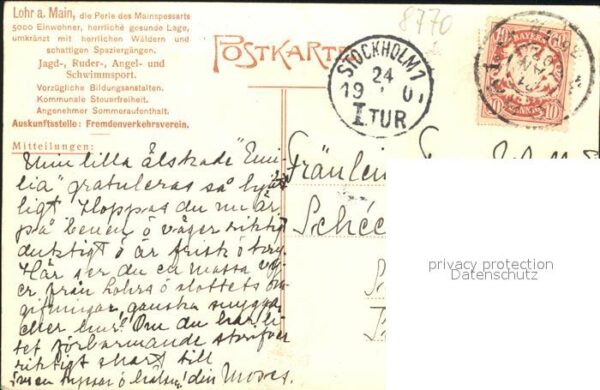 Lohr a. Main, die Perle des Mainspessarts
5000 Einwohner, herrliche gesunde Lage,
umkränzt mit herrlichen Wäldern und
schattigen Spaziergängen.
Jagd-, Ruder-, Angel- und
Schwimmsport.
Vorzügliche Bildungsanstalten.
Kommunale Steuerfreiheit.
Angenehmer Sommeraufenthalt.
Auskunftsstelle: Fremdenverkehrsverein.
Mitteilungen:
8770
POSTKARTE
STOCKHOLM 1
24
19 1 0
1 TUR
10 BAYERN 10
10 PFENNIG 10
lilla älskade "Emi-
lia" gratuleras så
ligt Hoppas du nu är
på benen o väger riktigt
duktigt o är frisk o
Här ser du en massa vy-
er från Lohrs o slottets om-
gifningar, ganska snygga
eller hur? Om du har li-
tet förbarmande
riktigt snart till
den Moves.
Fräulein
privacy protection
Datenschutz